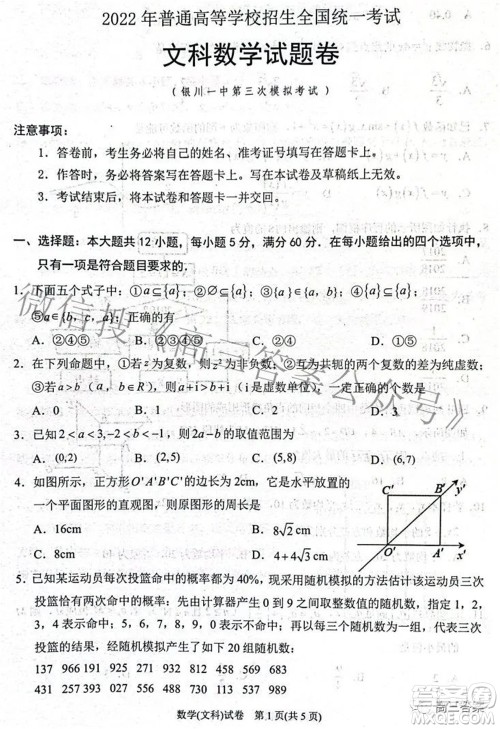 2022年普通高等学校招生全国统一考试
文科数学试题卷
(银川一中第三次模拟考试)
注意事项：
1．答卷前，考生务必将自己的姓名、准考证号填写在答题卡上。
2．作答时，务必将答案写在答题卡上。写在本试卷及草稿纸上无效。
3．考试结束后，将本试卷和答题卡一并交回。
一、选择题：本大题共12小题，每小题5分，满分60分．在每小题给出的四个选项中，
只有一项是符合题目要求的．
1．下面五个式子中：①a⊆{a}；②∅⊆{a}；③{a}∈{a,b}；④{a}⊆{a}；
⑤a∈{b,c,a}；正确的有
A．②④⑤ B．②③④⑤ C．②④ D．①⑤
2．在下列命题中，正确命题的个数是
3．已知2<a<3,-2<b<-1，则2a-b的取值范围为
A．(0,2) B．(2,5) C．(5,8) D．(6,7)
4．如图所示，正方形O'A'B'C'的边长为2cm，它是水平放置的
一个平面图形的直观图，则原图形的周长是
A．16cm B．8√2cm
C．8cm D．4+4√3cm
C' B' y'
O' A' x'
5．已知某运动员每次投篮命中的概率都为40%，现采用随机模拟的方法估计该运动员三次
投篮恰有两次命中的概率：先由计算器产生0到9之间取整数值的随机数，指定1，2，
3，4表示命中；5，6，7，8，9，0表示不命中；再以每三个随机数为一组，代表三次
投篮的结果，经随机模拟产生了如下20组随机数：
137 966 191 925 271 932 812 458 569 683
431 257 393 027 556 488 730 113 537 989
数学(文科)试卷 第1页(共5页)
微信搜《高三答案公众号》